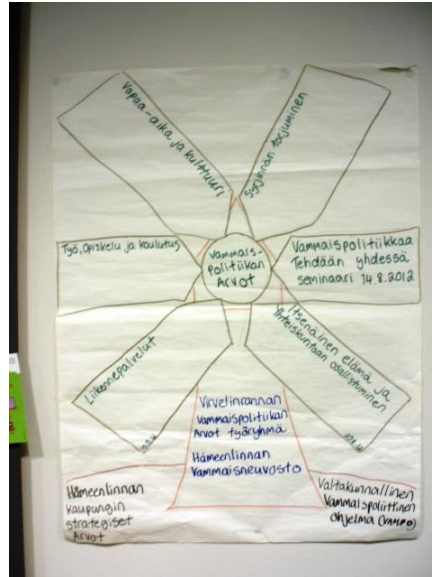 Vapaa-aika ja kulttuuri
Syrjinnän torjuminen
Työ, Opiskelu ja koulutus
Vammais-
politiikan
Arvot
Vammaispolitiikkaa
Tehdään yhdessä
seminaari 14.8.2012
Liikennepalvelut
Itsenäinen elämä ja
Yhteiskuntaan osallistuminen
Virvelinrannan
Vammaispolitiikan
Arvot työryhmä
Hämeenlinnan
Vammaisneuvosto
Hämeenlinnan
kaupungin
strategiset
Arvot
Valtakunnallinen
Vammaispoliittinen
ohjelma (VAMPO)